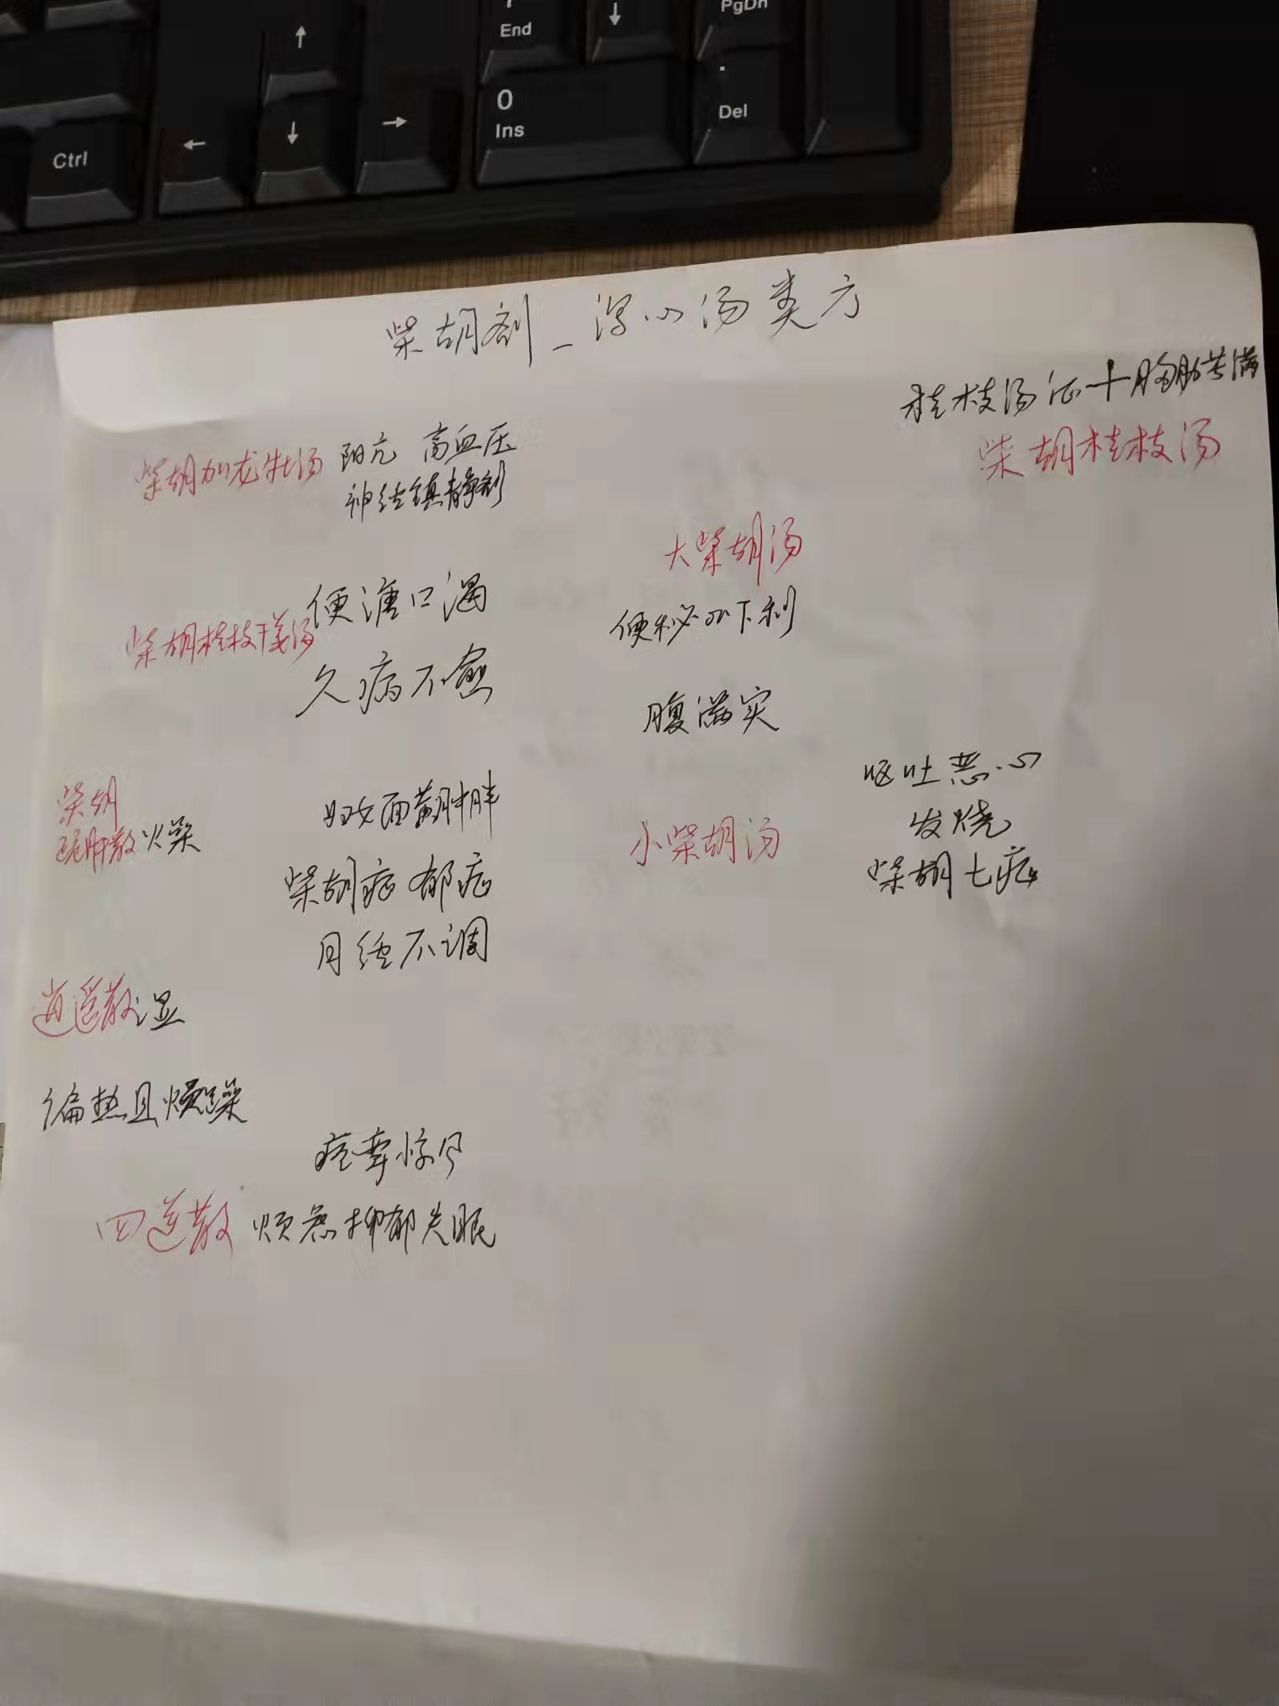 End
PgDn
0
Ins
Del
Ctrl
柴胡剂_泻心汤类方
桂枝汤证+胸胁苦满
柴胡桂枝汤
柴胡加龙牡汤 阳亢 高血压
神经镇静剂
大柴胡汤
便溏口渴
柴胡桂枝干姜汤
久病不愈
便秘或下利
腹满实
呕吐恶心
发烧
柴胡七症
小柴胡汤
柴胡
疏肝散 火燥
妇女面黄肿胖
柴胡症 郁症
月经不调
逍遥散 湿
偏热且燥
痉挛
四逆散 烦急抑郁失眠